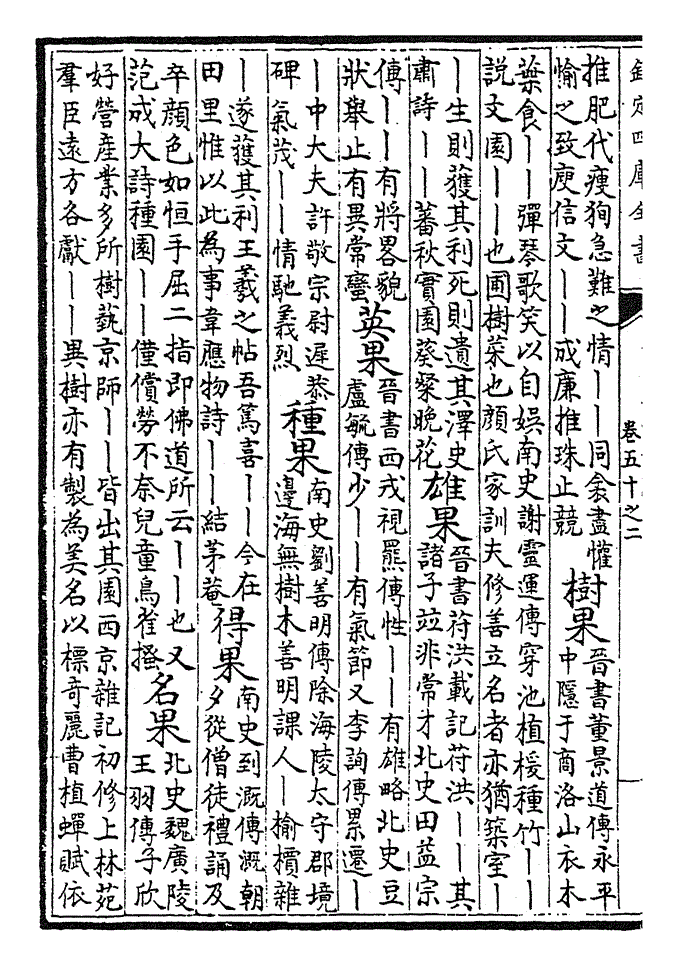 欽定四庫全書
卷五十之二
推肥代瘦狥急難之情||同衾盡懽
愉之致庾信文||成廉推珠止競
樹果
晉書董景道傳永平
中隱于商洛山衣木
葉食||彈琴歌笑以自娛南史謝靈運傳穿池植援種竹||
説文園||也圃樹菜也顔氏家訓夫修善立名者亦猶築室|
|生則獲其利死則遺其澤史
肅詩||蕃秋實園葵粲晚花
雄果
晉書苻洪載記苻洪||其
諸子竝非常才北史田益宗
傳||有將畧貌
狀舉止有異常蠻
英果
晉書西戎視羆傳性||有雄略北史豆
盧毓傳少||有氣節又李詢傳累遷|
|中大夫許敬宗尉遲恭
碑氣茂||情馳義烈
種果
南史劉善明傳除海陵太守郡境
邊海無樹木善明課人|榆檟雜
|遂獲其利王羲之帖吾篤喜||今在
田里惟以此為事韋應物詩||結茅菴
得果
南史到溉傳溉朝
夕從僧徒禮誦及
卒顔色如恒手屈二指即佛道所云||也又
范成大詩種園||僅償勞不奈兒童鳥雀搔
名果
北史魏廣陵
王羽傳子欣
好營產業多所樹藝京師||皆出其園西京雜記初修上林苑
羣臣遠方各獻||異樹亦有製為美名以標奇麗曹植蟬賦依